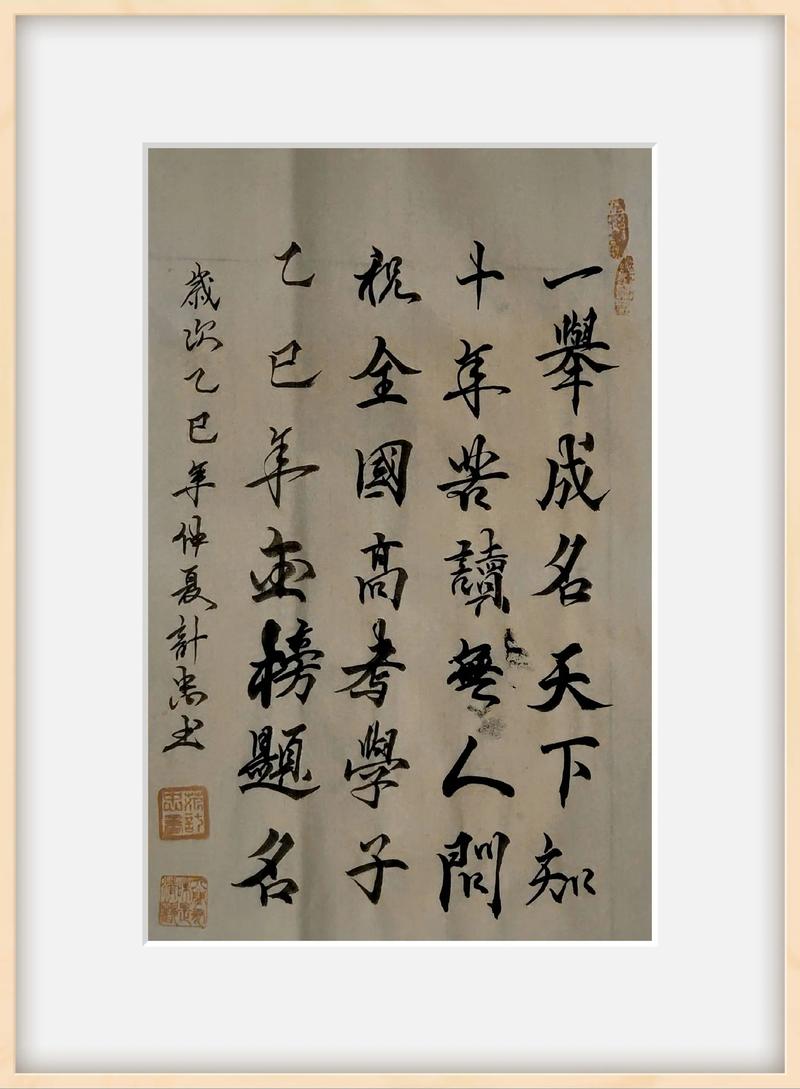 一舉成名天下知
十年苦讀無人問
祝全國高考學子
乙巳年金榜題名
歲次乙巳年仲夏計忠书